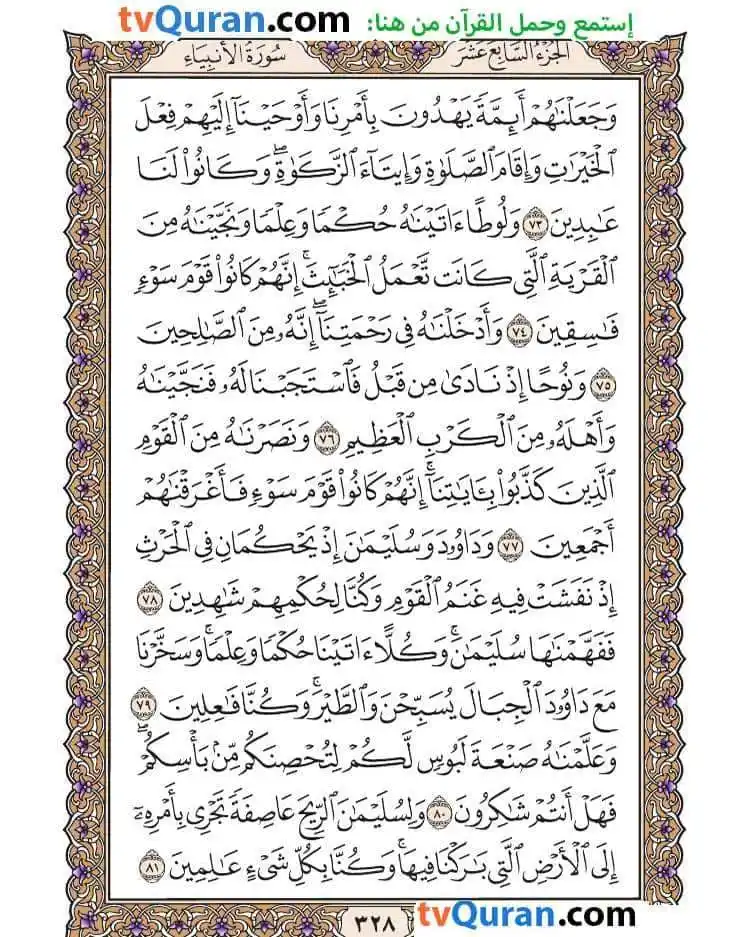 tvQuran.com إستمع وحمل القرآن من هنا:
الجزء السابع عشر سورة الأنبياء
وَجَعَلْنَٰهُمْ أَئِمَّةً يَهْدُونَ بِأَمْرِنَا وَأَوْحَيْنَآ إِلَيْهِمْ فِعْلَ
ٱلْخَيْرَٰتِ وَإِقَامَ ٱلصَّلَوٰةِ وَإِيتَآءَ ٱلزَّكَوٰةِۖ وَكَانُوا۟ لَنَا
عَٰبِدِينَ ٧٣ وَلُوطًا ءَاتَيْنَٰهُ حُكْمًا وَعِلْمًا وَنَجَّيْنَٰهُ مِنَ
ٱلْقَرْيَةِ ٱلَّتِى كَانَت تَّعْمَلُ ٱلْخَبَٰٓئِثَۚ إِنَّهُمْ كَانُوا۟ قَوْمَ سَوْءٍ
فَٰسِقِينَ ٧٤ وَأَدْخَلْنَٰهُ فِى رَحْمَتِنَآۖ إِنَّهُۥ مِنَ ٱلصَّٰلِحِينَ
٧٥ وَنُوحًا إِذْ نَادَىٰ مِن قَبْلُ فَٱسْتَجَبْنَا لَهُۥ فَنَجَّيْنَٰهُ
وَأَهْلَهُۥ مِنَ ٱلْكَرْبِ ٱلْعَظِيمِ ٧٦ وَنَصَرْنَٰهُ مِنَ ٱلْقَوْمِ
ٱلَّذِينَ كَذَّبُوا۟ بِـَٔايَٰتِنَآۚ إِنَّهُمْ كَانُوا۟ قَوْمَ سَوْءٍ فَأَغْرَقْنَٰهُمْ
أَجْمَعِينَ ٧٧ وَدَاوُۥدَ وَسُلَيْمَٰنَ إِذْ يَحْكُمَانِ فِى ٱلْحَرْثِ
إِذْ نَفَشَتْ فِيهِ غَنَمُ ٱلْقَوْمِ وَكُنَّا لِحُكْمِهِمْ شَٰهِدِينَ ٧٨
فَفَهَّمْنَٰهَا سُلَيْمَٰنَۚ وَكُلًّا ءَاتَيْنَا حُكْمًا وَعِلْمًاۚ وَسَخَّرْنَا
مَعَ دَاوُۥدَ ٱلْجِبَالَ يُسَبِّحْنَ وَٱلطَّيْرَۚ وَكُنَّا فَٰعِلِينَ ٧٩
وَعَلَّمْنَٰهُ صَنْعَةَ لَبُوسٍ لَّكُمْ لِتُحْصِنَكُم مِّنۢ بَأْسِكُمْۖ
فَهَلْ أَنتُمْ شَٰكِرُونَ ٨٠ وَلِسُلَيْمَٰنَ ٱلرِّيحَ عَاصِفَةً تَجْرِى بِأَمْرِهِۦٓ
إِلَى ٱلْأَرْضِ ٱلَّتِى بَٰرَكْنَا فِيهَاۚ وَكُنَّا بِكُلِّ شَىْءٍ عَٰلِمِينَ ٨١
٣٢٨ tvQuran.com